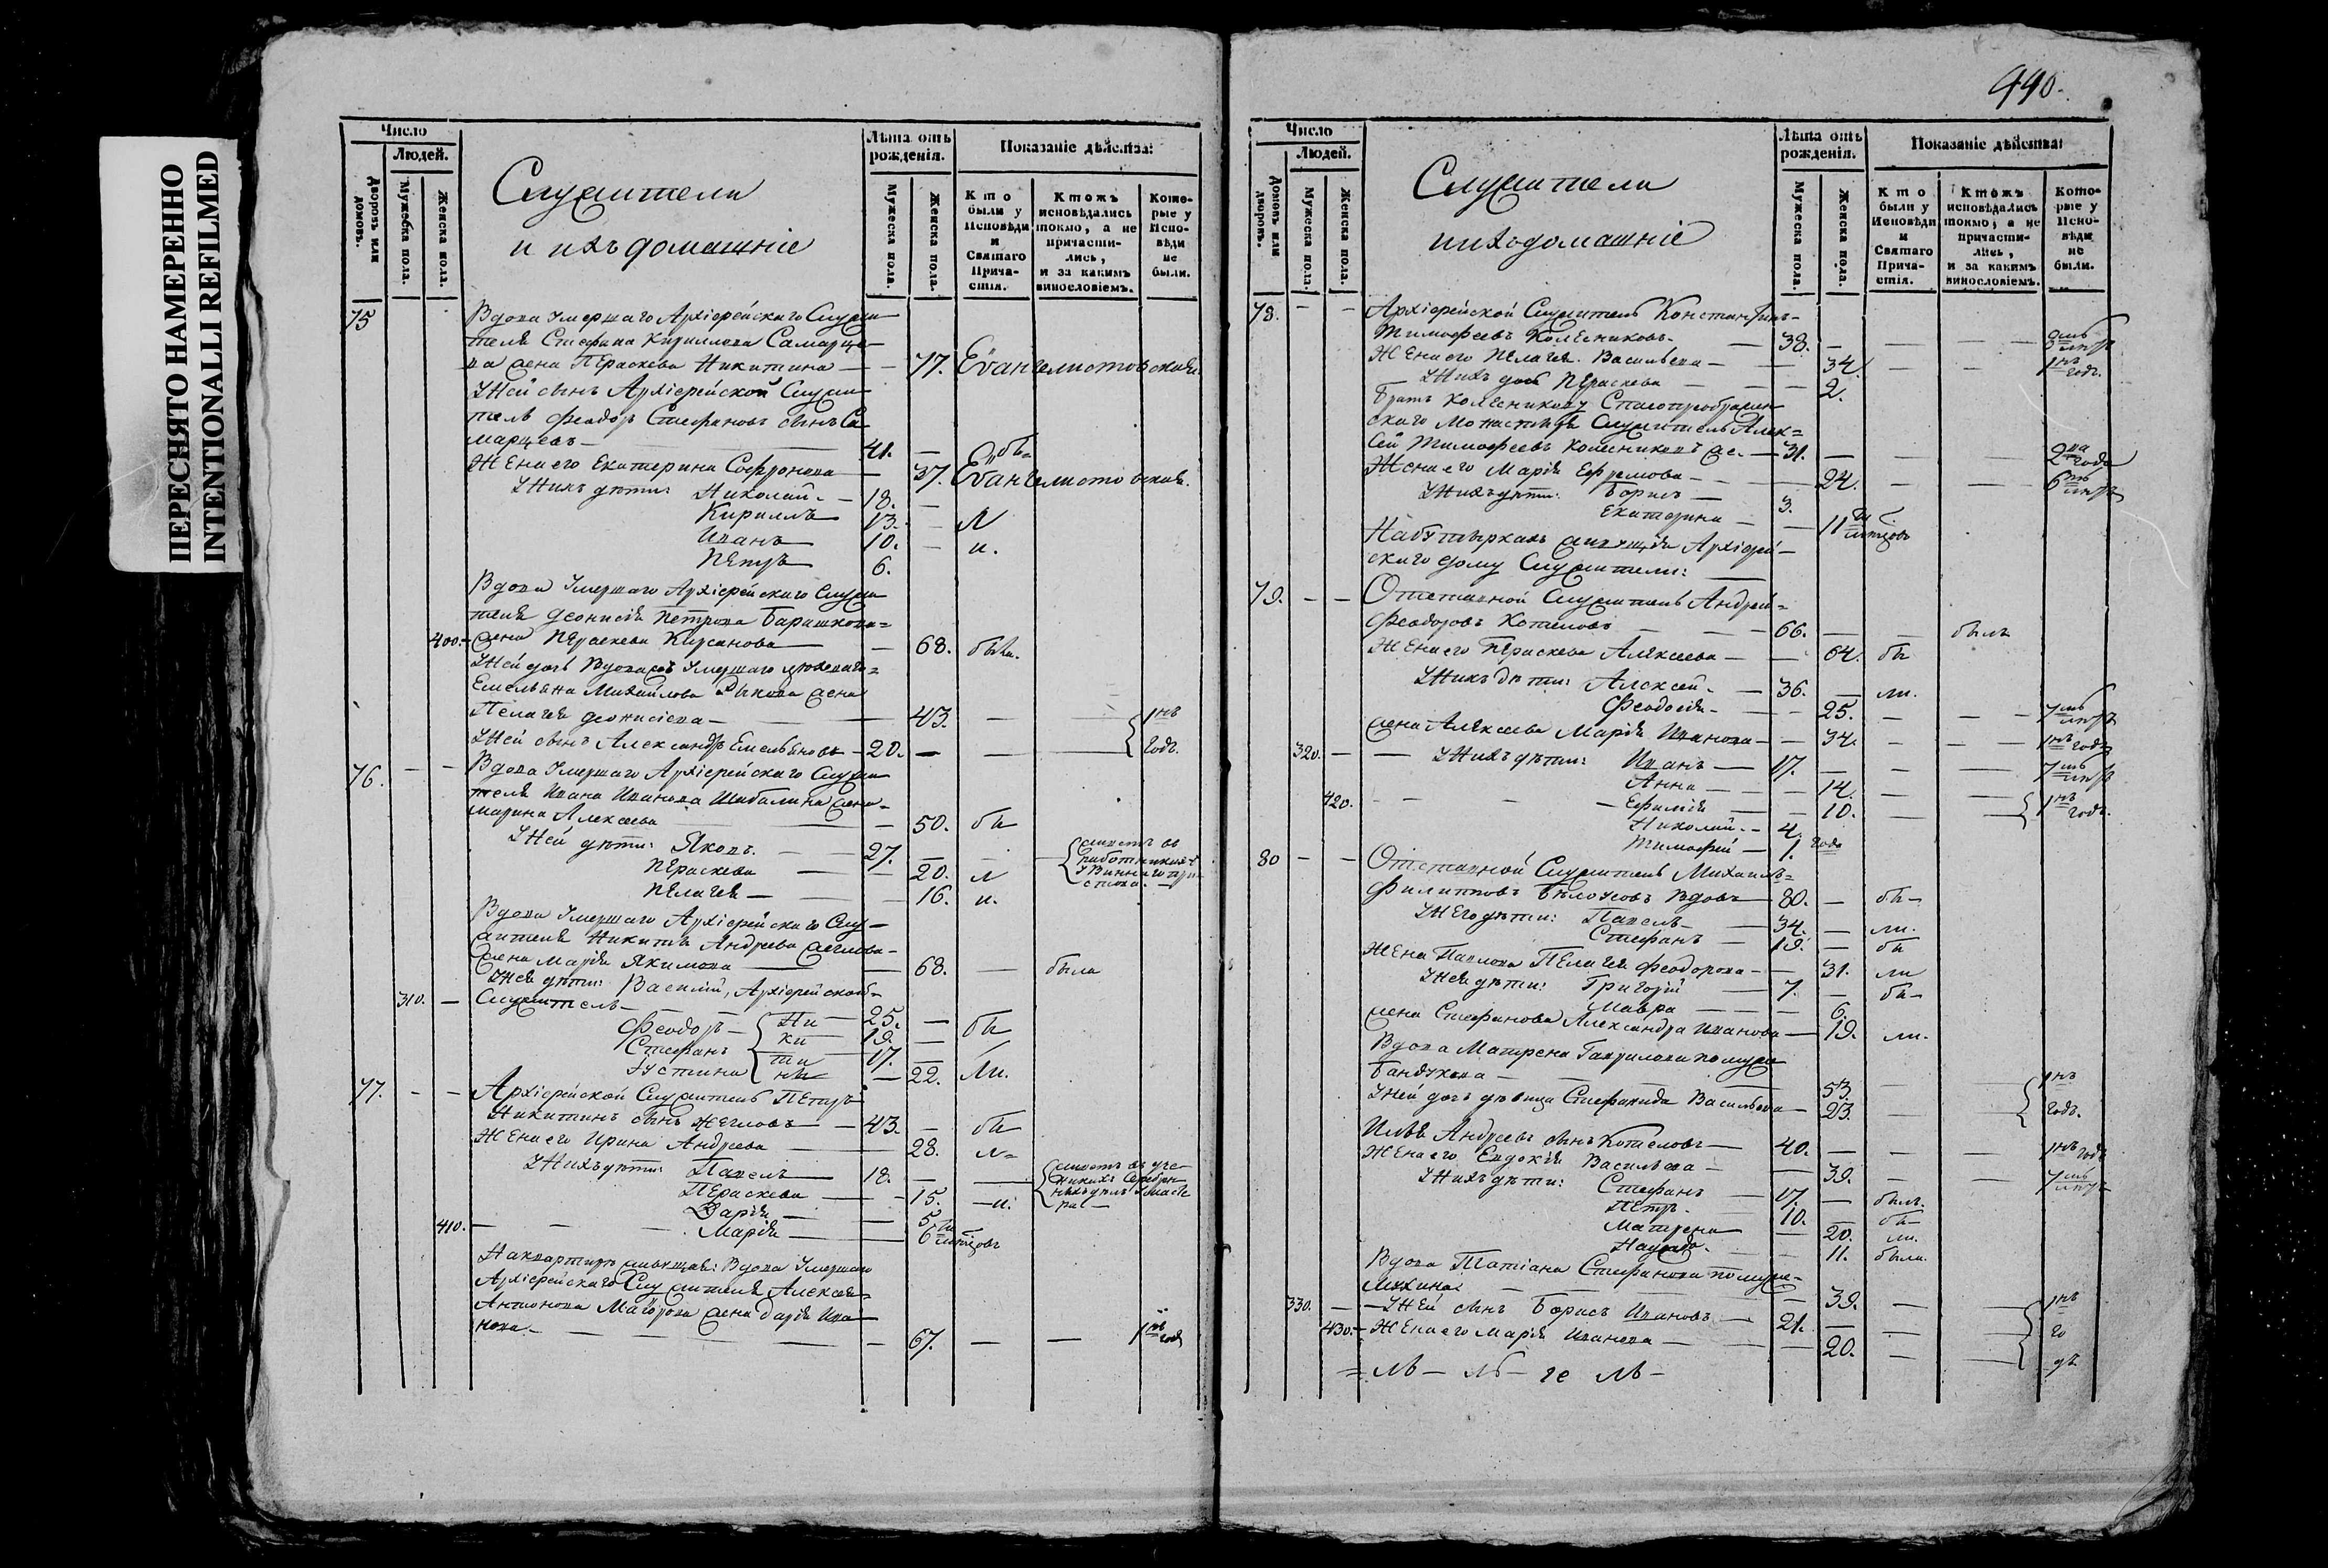 ПЕРЕСНЯТО НАМЕРЕННО
INTENTIONALLI REFILMED
Число
Людей.
Дворовъ или домовъ.
Мужеска пола.
Женска пола.
Служители
и ихъ домашніе
Лѣта отъ рожденія.
Мужеска пола.
Женска пола.
Показаніе дѣйства:
Кто были у Исповѣди и Святаго Прича-стія.
Ктожъ исповѣдались токмо, а не причасти-лись, и за какимъ винословіемъ.
Кото-рые у Испо-вѣди не были.
75 Вдова умершаго Архіерейскаго Служи
теля Стефана Кирилова Самарце-
ва жена Параскева Никитина 77. Евангелистовская
У Ней сынъ Архіерейской Служи
тель Феодоръ Стефановъ сынъ Са
марцевъ 41.
Жена его Екатерина Софронова 37. Евангелистовская.
У Нихъ дѣти: Николай 18.
Кириллъ 13.
Иванъ 10. и.
Петръ 6.
Вдова умершаго Архіерейскаго Служи
теля Деонисія Петрова Барашкова
400. жена Параскева Кирсанова 68. была.
У Ней дочь вдова умершаго
Емельяна Михайлова Рыкова жена
Пелагея Деонисіева 43. 1нъ
У Ней сынъ Александръ Емельяновъ 20. годъ.
76. Вдова умершаго Архіерейскаго Служи
теля Ивана Иванова Шибалина жена
Марина Алексеева 50. бы
У Ней дѣти: Яковъ 27. живетъ въ
работникахъ
Параскева 20. л
Пелагея 16. и.
Вдова умершаго Архіерейскаго Слу-
жителя Никиты Андреева Жеглова
жена Марія Якимова 68. была
У Нея дѣти: Василій, Архіерейской
310. Служитель 25.
Феодоръ Ни 19. бы
Стефанъ ки 17.
Устинья ти ны 22. ли.
77. Архіерейской Служитель Петръ
Никитинъ сынъ Жегловъ 43. бы
Жена его Ирина Андреева 28. л
У Нихъ дѣти: Павелъ 18. живетъ въ уче
никахъ
Параскева 15. и.
Дарія 5
410. Марія 6ти мѣсяцовъ
На квартирѣ живущая: Вдова умершаго
Архіерейскаго Служителя Алексея
Антонова Маіорова жена Дарія Ива
нова 67. 1нъ годъ
990.
Число
Людей.
Домовъ или дворовъ.
Мужеска пола.
Женска пола.
Служители
и ихъ домашніе
Лѣта отъ рожденія.
Мужеска пола.
Женска пола.
Показаніе дѣйства:
Кто были у Исповѣди и Святаго Прича-стія.
Ктожъ исповѣдались токмо, а не причасти-лись, и за какимъ винословіемъ.
Кото-рые у Испо-вѣди не были.
78. Архіерейской Служитель Константинъ
Тимофеевъ Колесниковъ 38.
Жена его Пелагея Васильева 34. 1нъ годъ.
У Нихъ дочь Параскева 2.
Братъ Колесникову Спасопреображен
скаго Монастыря Служитель Алек=
сей Тимофеевъ Колесниковъ же. 31. 2ва года
Жена его Марія Ефремова 24. 6ть
У Нихъ дѣти: Борисъ 3.
Екатерина 11ти мѣсяцовъ
живущія Архіерей-
скаго дому Служители:
79. Отставной Служитель Андрей
Феодоровъ Котеловъ 66. былъ
Жена его Параскева Алексеева 64. бы
У Нихъ дѣти: Алексей 36. ли.
Феодосія 25. 7мь
жена Алексеева Марія Иванова 34. 1нъ годъ
320. У Нихъ дѣти: Иванъ 17. 7мь
Анна 14. 1нъ
420. Ефимія 10. годъ.
Николай 4.
Тимофей 1. года
80 Отставной Служитель Михаилъ
Филипповъ Бѣлоусовъ вдовъ 80. бы
У Него дѣти: Павелъ 34. ли.
Стефанъ 19. бы
Жена Павлова Пелагея Феодорова 31. ли
У Нея дѣти: Григорій 7. бы
Мавра 6.
жена Стефанова Александра Иванова 19. ли.
Вдова Матрена Гаврилова по мужу
Бандукова 53. 1нъ
У Ней дочь дѣвица Стефанида Васильева 23. годъ.
Илья Андреевъ сынъ Котеловъ 40. 1нъ годъ
Жена его Евдокія Васильева 39. 7мь
У Нихъ дѣти: Стефанъ 17. былъ.
Петръ 10. бы
Матрена 20. ли.
11. была.
Вдова Татіана Стефанова по мужу
39. 1нъ
330. У Ней сынъ Борисъ Ивановъ 21. го
430. Жена его Марія Иванова 20. дъ